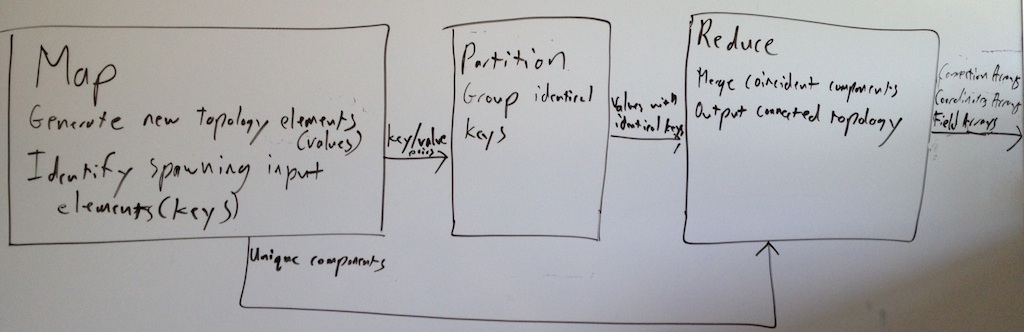 Map
Generate new topology elements
(values)
Identify spawning input
elements (keys)
key/value
pairs
Partition
Group identical
keys
Values with
identical keys
Reduce
Merge coincident components
Output connected topology
Connection Arrays
Coordinates Arrays
Field Arrays
Unique components